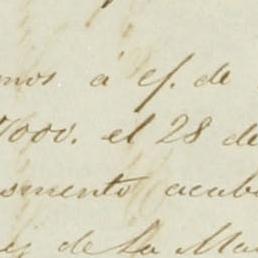 mos á ef. de
7000. el 28 de
omento acab
de la Ma